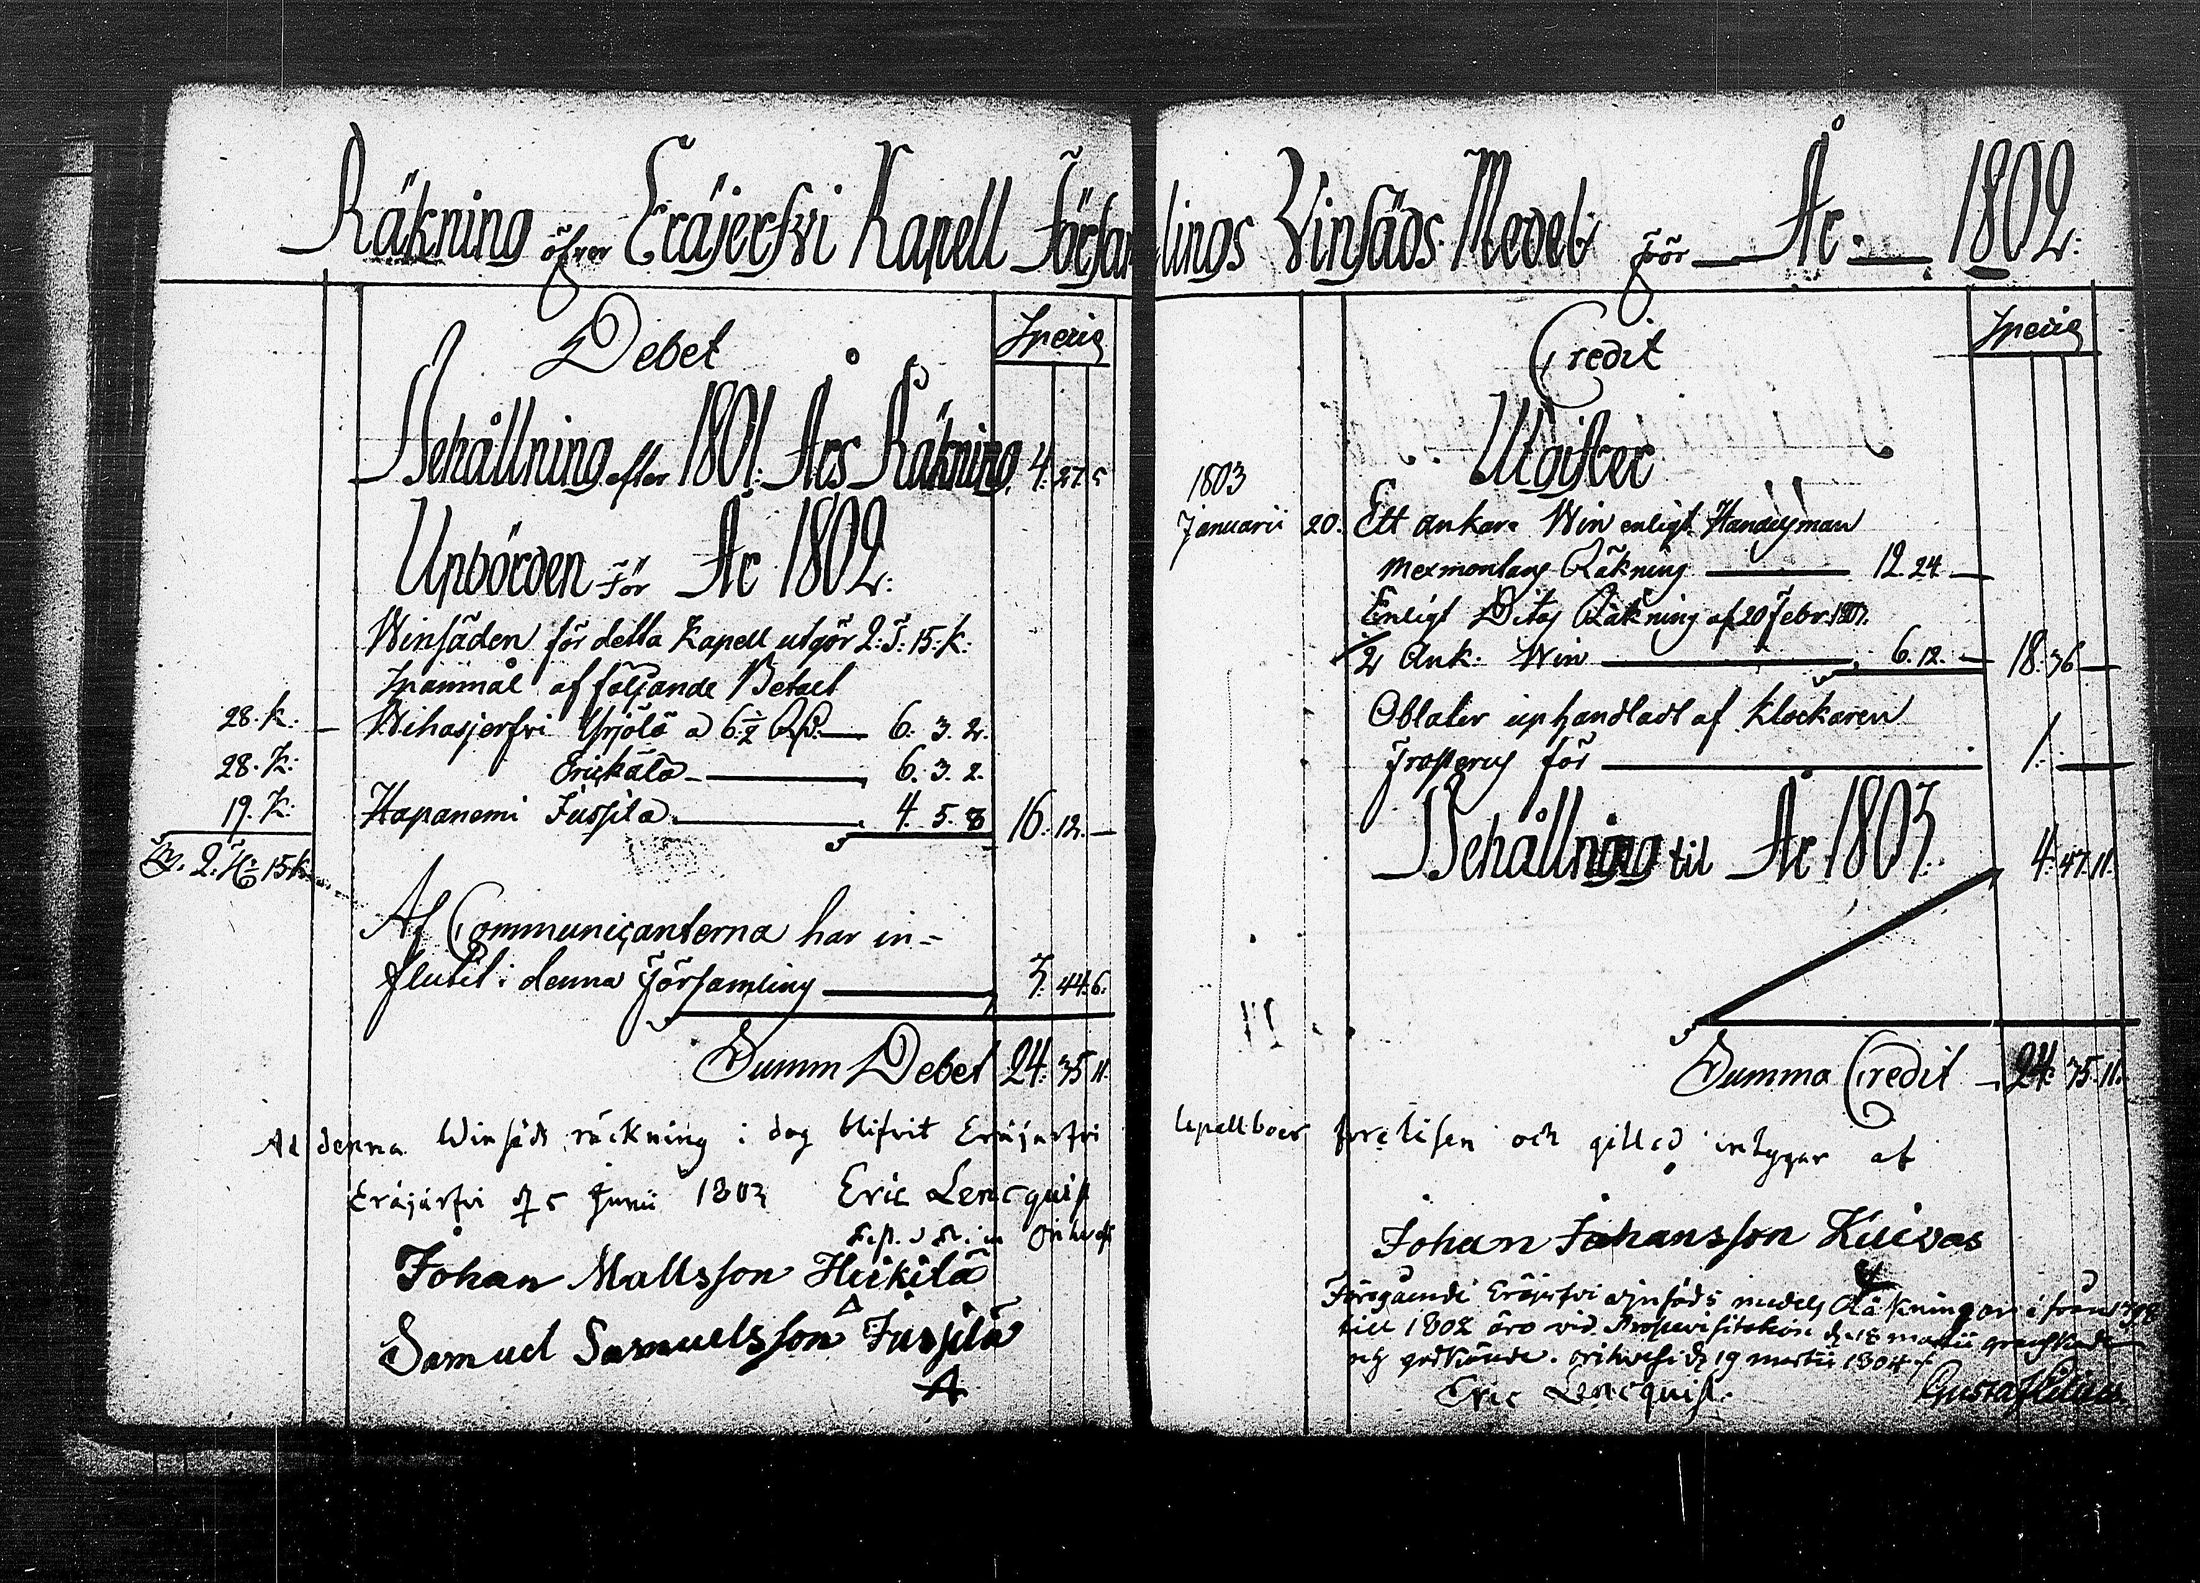 Räkning öfver Eräjerfvi Kapell Församlings Vinsäds Medel för År 1802.
Debet
Specie
Behållning efter 1801. Års Räkning. 4. 27. 5
Upbörden för År 1802.
Winsäden för detta Kapell utgör 2. T. 15. k.
Spanmål af följande Betalt
28. k. Wihasjerfvi Yrjölä a 6 1/2 Rd. 6. 3. 2.
28. K: Erickälä 6. 3. 2.
19. K: Hapanemi Jussila 4. 5. 8 16. 12.
2. T. 15 k.
Af Communicanterna har in=
flutit i denna Församling 3. 44. 6.
Summ Debet 24. 35 11.
At denna Winsäds räckning i dag blifvit Eräjärfvi
Eräjärfvi d 5 Junii 1803 Eric Lencquist
Johan Mattsson Heikilä
Samuel Samuelsson Jussila
Credit
Specie
Utgifter
1803
Januarii 20. Ett ankare Win enligt Handelsman
Mexmontans Räkning 12. 24
Enligt Ditos Räkning af 20 Febr.
1/2 Ank. Win 6. 12. 18. 36
Oblater uphandladt af Klockaren
Frosterus för 1.
Behållning til År 1803. 4. 47. 11.
Summa Credit 24. 35. 11.
Capellboer förelisen och gillad intygar af
Johan Johansson Kuivas
Föregående Eräjerfvi vinsäds medels Räkningar ifrån
till 1802 äro vid Prosvisitation d. 18 martii granskade
och godkände. Orihvesi d 19 martii 1804
Eric Lencquist.